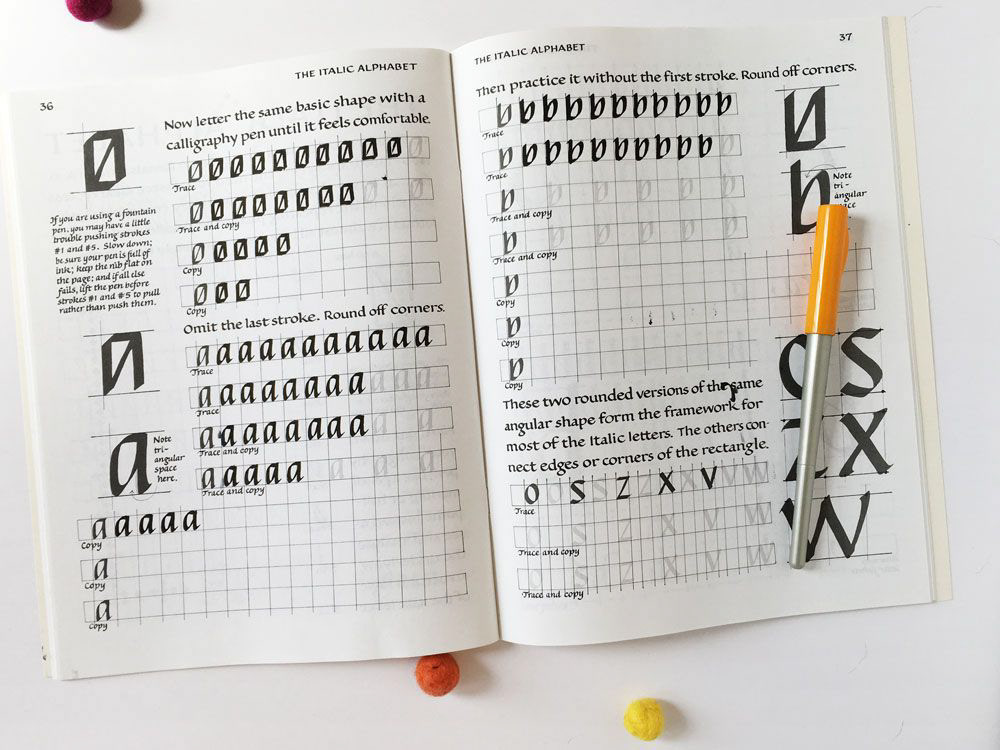 36
THE ITALIC ALPHABET
Now letter the same basic shape with a
calligraphy pen until it feels comfortable.
Trace
Trace and copy
Copy
Copy
If you are using a fountain
pen, you may have a little
trouble pushing strokes
#1 and #5. Slow down;
be sure your pen is full of
ink; keep the nib flat on
the page; and if all else
fails, lift the pen before
strokes #1 and #5 to pull
rather than push them.
Omit the last stroke. Round off corners.
a a a a a a a a a a a
Trace
a a a a a a a a
Trace
a a a a a a a a
Trace and copy
a a a a a
Trace and copy
a
Note
tri-
angular
space
here.
a a a a a
Copy
a
Copy
a
Copy
THE ITALIC ALPHABET
37
Then practice it without the first stroke. Round off corners.
b b b b b b b b b b b
Trace
b b b b b b b b b b
Trace
b
Trace and copy
b
Trace and copy
b
Copy
b
Copy
b
Copy
b
Note
tri-
angular
These two rounded versions of the same
angular shape form the framework for
most of the Italic letters. The others con-
nect edges or corners of the rectangle.
O S Z X V W
Trace
S Z X V W
Trace and copy
O S Z X V W
Trace and copy
O S
Z X
W